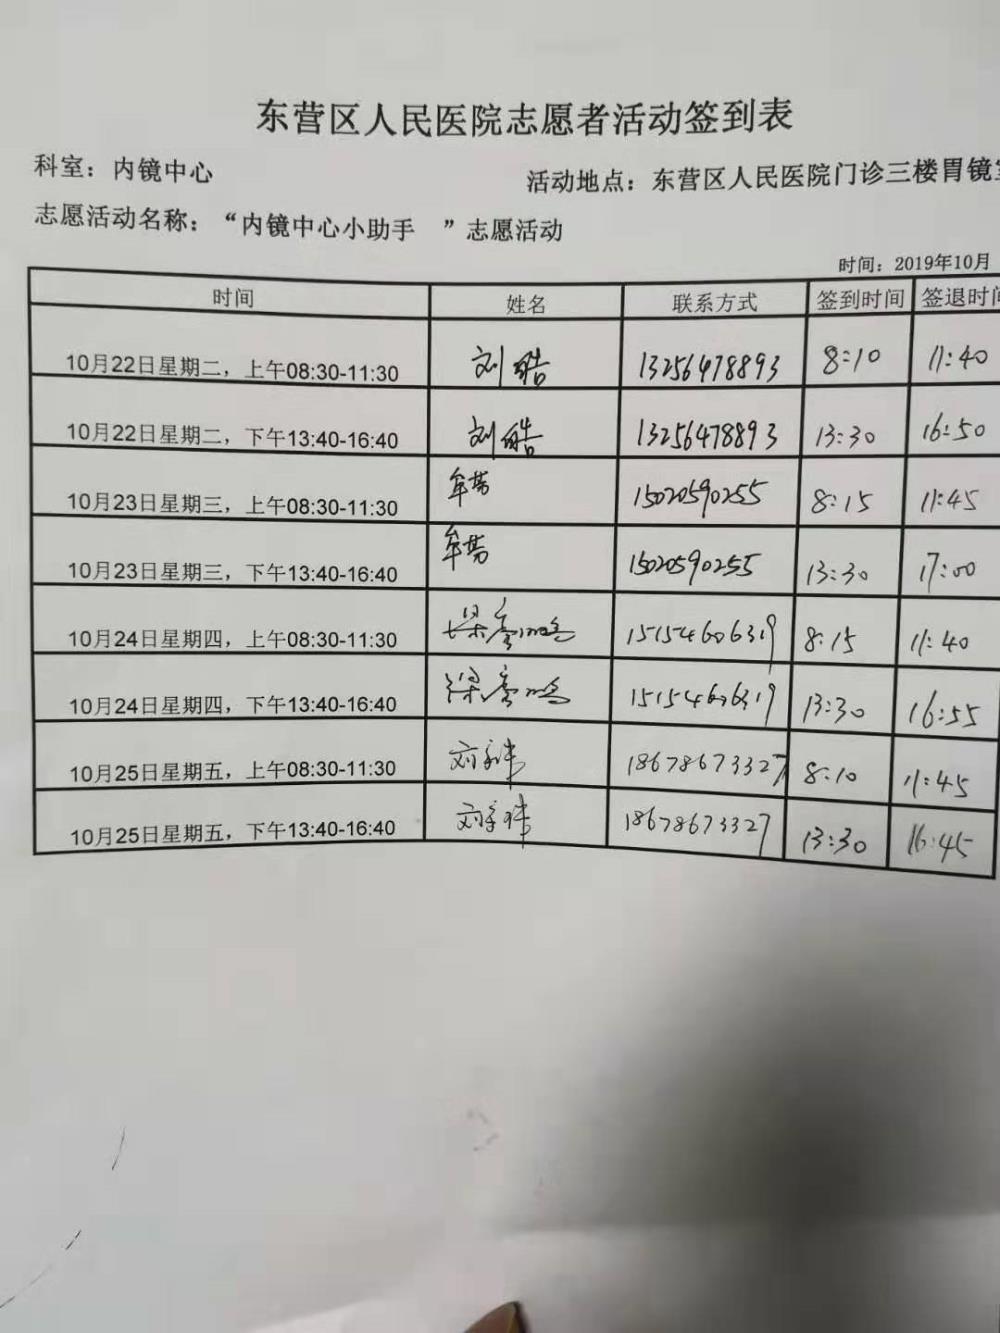 东营区人民医院志愿者活动签到表
科室：内镜中心 活动地点：东营区人民医院门诊三楼胃镜室
志愿活动名称：“内镜中心小助手 ”志愿活动
时间：2019年10月
时间 姓名 联系方式 签到时间 签退时间
10月22日星期二，上午08:30-11:30 刘皓 13256478893 8:10 11:40
10月22日星期二，下午13:40-16:40 刘皓 13256478893 13:30 16:50
10月23日星期三，上午08:30-11:30 15020590255 8:15 11:45
10月23日星期三，下午13:40-16:40 15020590255 13:30 17:00
10月24日星期四，上午08:30-11:30 15154606319 8:15 11:40
10月24日星期四，下午13:40-16:40 15154606319 13:30 16:55
10月25日星期五，上午08:30-11:30 18678673327 8:10 11:45
10月25日星期五，下午13:40-16:40 18678673327 13:30 16:45